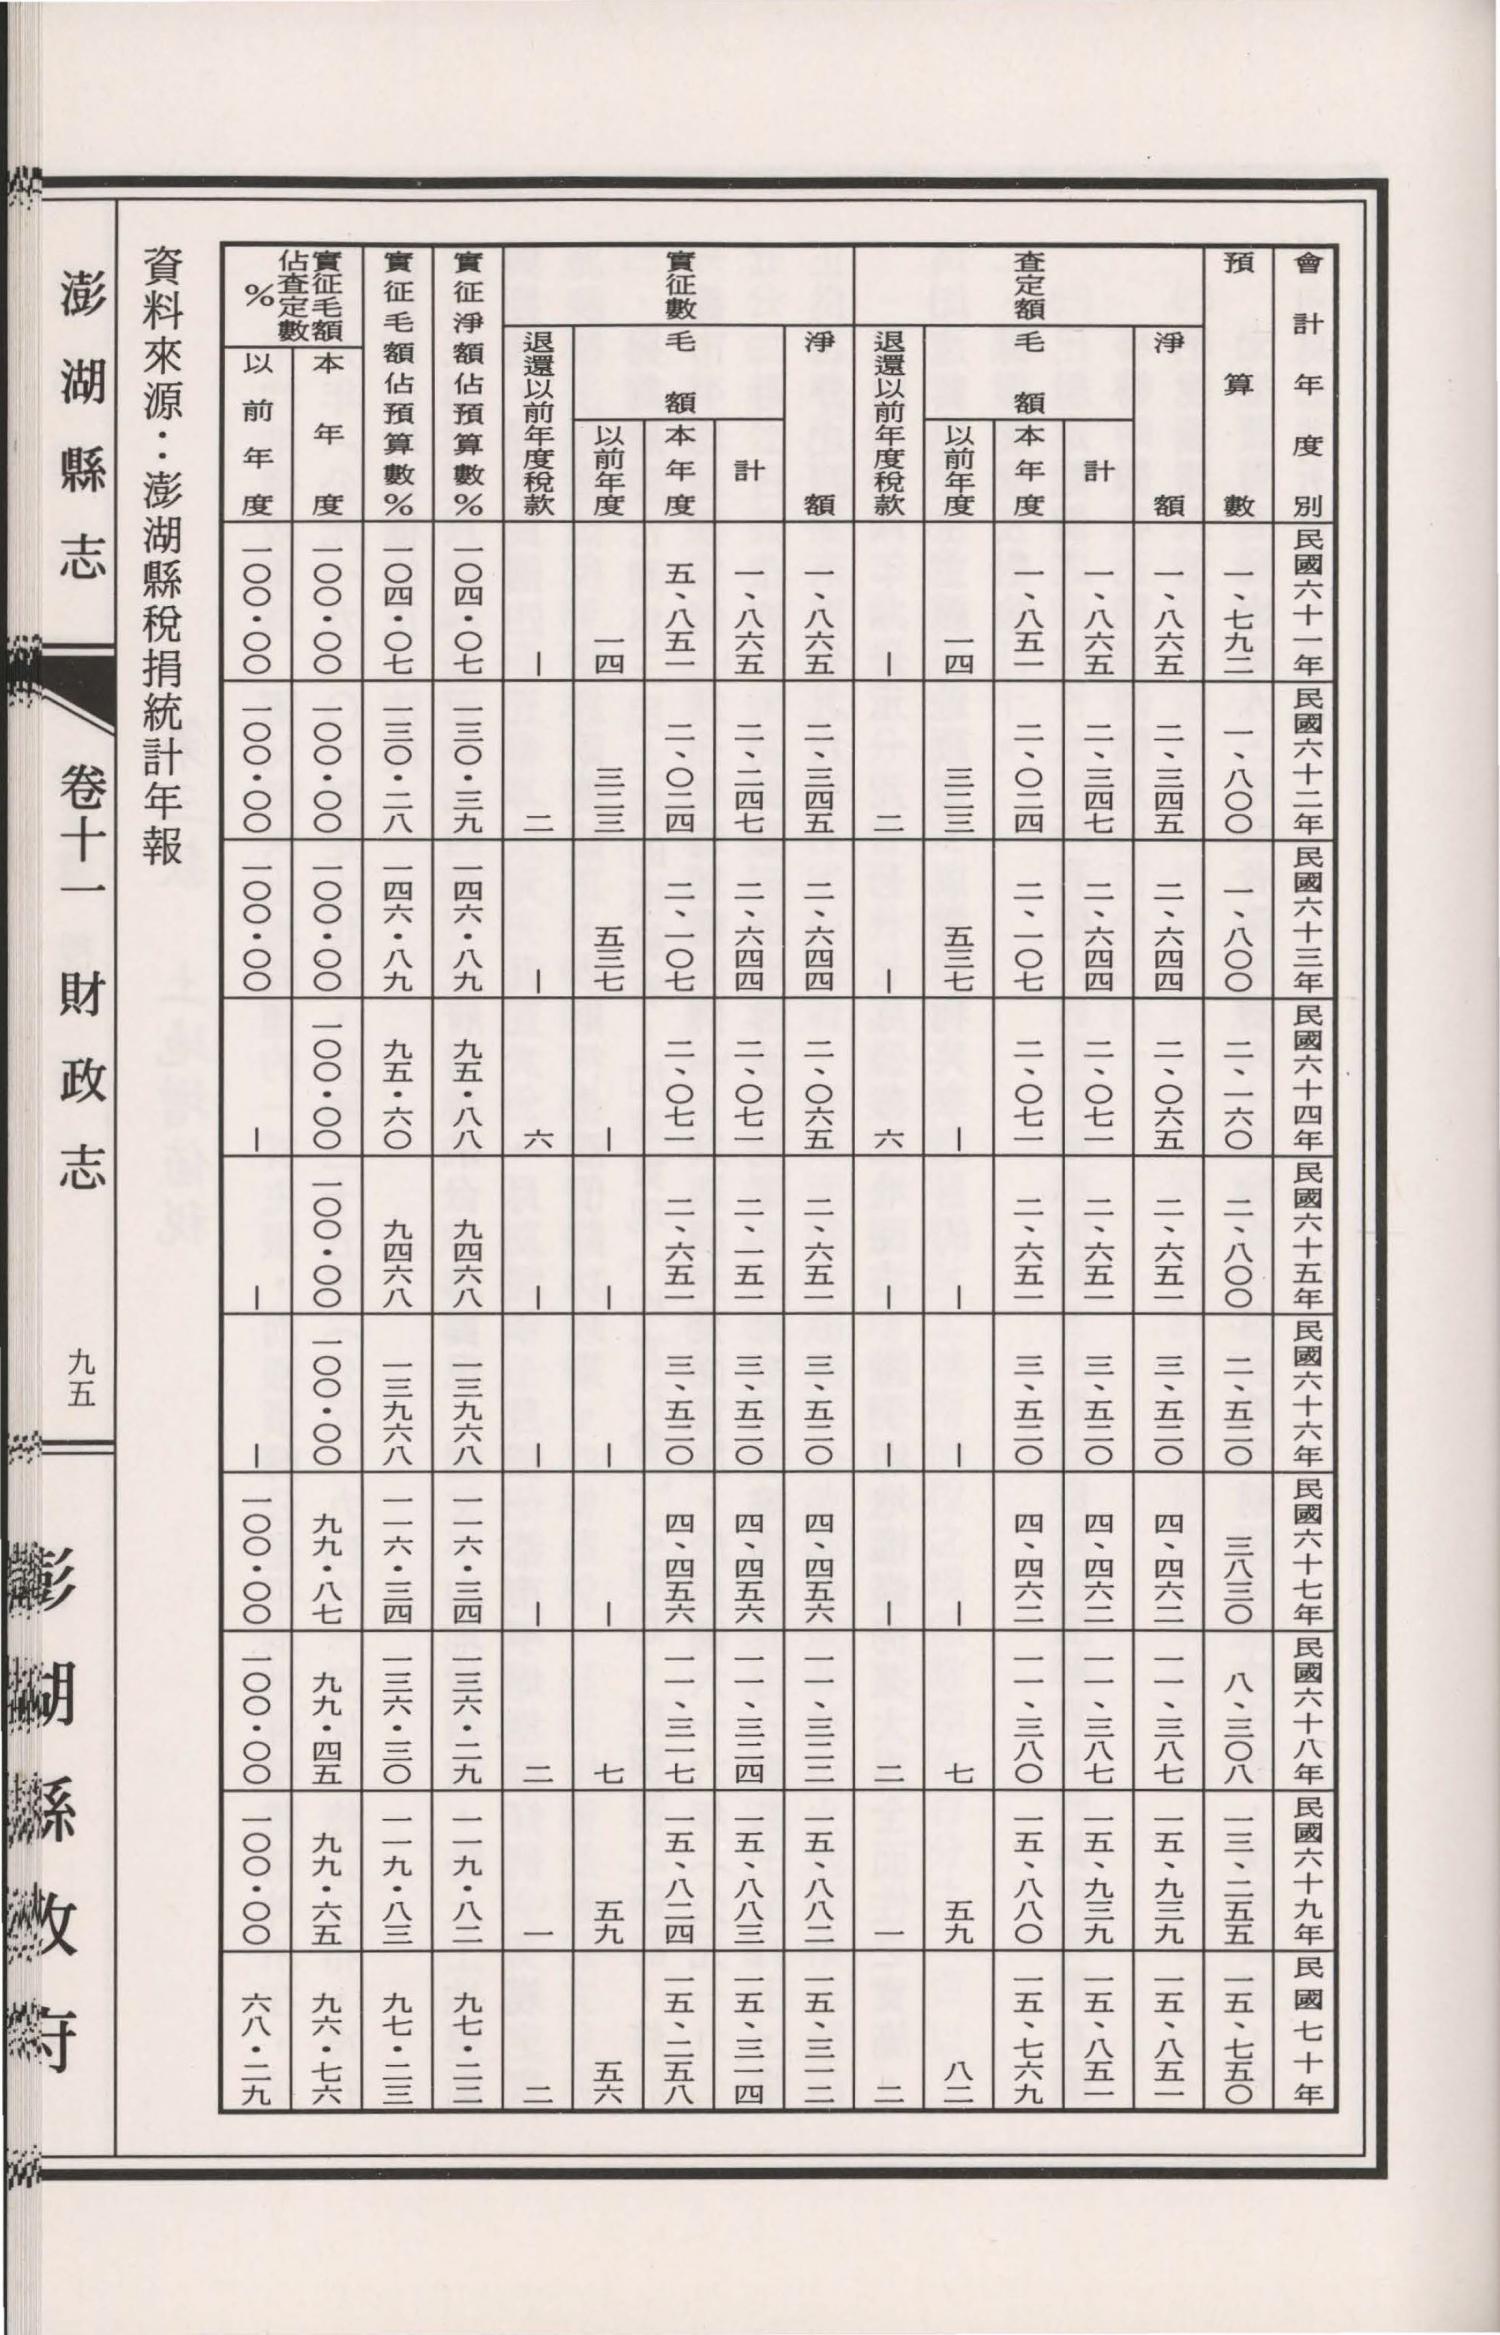 會計年度別 民國六十一年 民國六十二年 民國六十三年 民國六十四年 民國六十五年 民國六十六年 民國六十七年 民國六十八年 民國六十九年 民國七十年
預算數 一、七九二 一、八〇〇 一、八〇〇 二、一六〇 二、八〇〇 二、五二〇 三八三〇 八、三〇八 一三、二五五 一五、七五〇
查定額
淨額 一、八六五 二、三四五 二、六四四 二、〇六五 二、六五一 三、五二〇 四、四六二 一一、三八七 一五、九三九 一五、八五一
毛額
計 一、八六五 二、三四七 二、六四四 二、〇七一 二、六五一 三、五二〇 四、四六二 一一、三八七 一五、九三九 一五、八五一
本年度 一、八五一 二、〇二四 二、一〇七 二、〇七一 二、六五一 三、五二〇 四、四六二 一一、三八〇 一五、八八〇 一五、七六九
以前年度 一四 三二三 五三七 — — — — 七 五九 八二
退還以前年度稅款 — 二 — 六 — — — 二 一 二
實征數
淨額 一、八六五 二、三四五 二、六四四 二、〇六五 二、六五一 三、五二〇 四、四五六 一一、三二二 一五、八八二 一五、三一二
毛額
計 一、八六五 二、二四七 二、六四四 二、〇七一 二、一五一 三、五二〇 四、四五六 一一、三二四 一五、八八三 一五、三一四
本年度 五、八五一 二、〇二四 二、一〇七 二、〇七一 二、六五一 三、五二〇 四、四五六 一一、三一七 一五、八二四 一五、二五八
以前年度 一四 三二三 五三七 — — — — 七 五九 五六
退還以前年度稅款 — 二 — 六 — — — 二 一 二
實征淨額佔預算數% 一〇四·〇七 一三〇·三九 一四六·八九 九五·八八 九四六八 一三九六八 一一六·三四 一三六·二九 一一九·八二 九七·二二
實征毛額佔預算數% 一〇四·〇七 一三〇·二八 一四六·八九 九五·六〇 九四六八 一三九六八 一一六·三四 一三六·三〇 一一九·八三 九七·二三
實征毛額佔查定數%
本年度 一〇〇·〇〇 一〇〇·〇〇 一〇〇·〇〇 一〇〇·〇〇 一〇〇·〇〇 一〇〇·〇〇 九九·八七 九九·四五 九九·六五 九六·七六
以前年度 一〇〇·〇〇 一〇〇·〇〇 一〇〇·〇〇 — — — 一〇〇·〇〇 一〇〇·〇〇 一〇〇·〇〇 六八·二九
資料來源：澎湖縣稅捐統計年報
澎湖縣志 卷十一 財政志 九五
澎湖縣政府